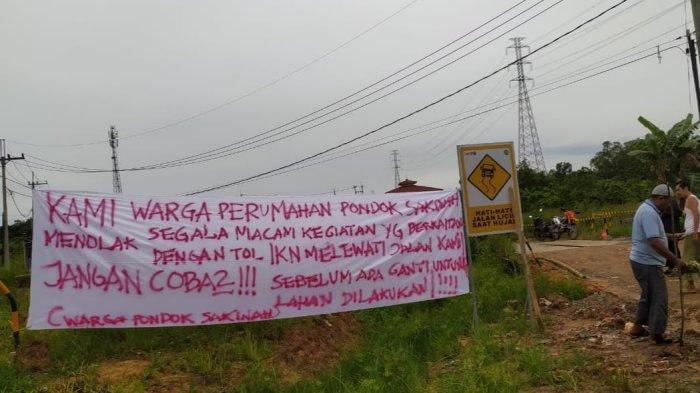 KAMI WARGA PERUMAHAN PONDOK SAKINAH
MENOLAK SEGALA MACAM KEGIATAN YG BERKAITAN
DENGAN TOL IKN MELEWATI JALAN KAMI
JANGAN COBA2!!! SEBELUM ADA GANTI UNTUNG
LAHAN DILAKUKAN!!!!
(WARGA PONDOK SAKINAH)
HATI-HATI
JALAN LICIN
SAAT HUJAN